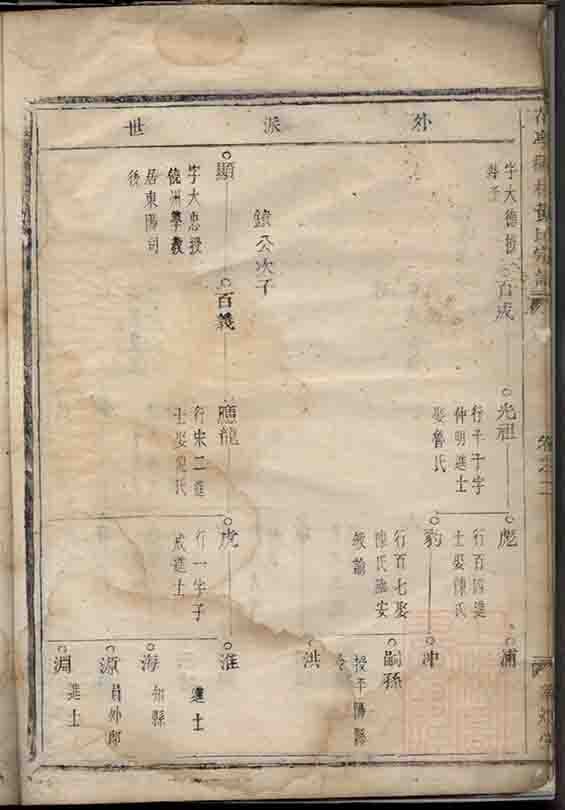 外派世
字大德
百成
光祖
行千千字
仲明進士
娶魯氏
彪
行百四進
士娶陳氏
浦
豹
行百七娶
陳氏臨安
教諭
冲
嗣孫
授平陽縣
令
洪
鐐公次子
顯
字大忠授
饒洲學教
居東陽司
後
百義
應龍
行宋二進
士娶倪氏
虎
行一字子
成進士
淮
進士
海
知縣
源
員外郎
淵
進士
黃氏宗譜
卷之二